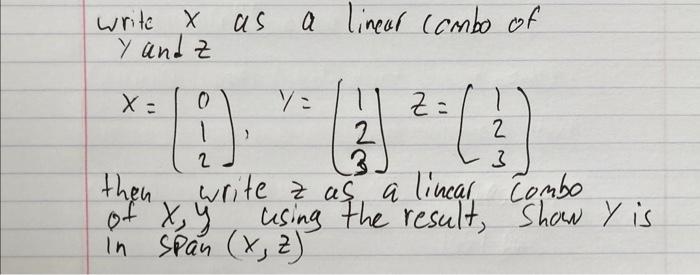 write X as a linear combo of
Y and Z
X = [0 1 2], Y = [1 2 3] Z = (1 2 3)
then write z as a linear combo
of X, y using the result, Show Y is
in span (X, Z)